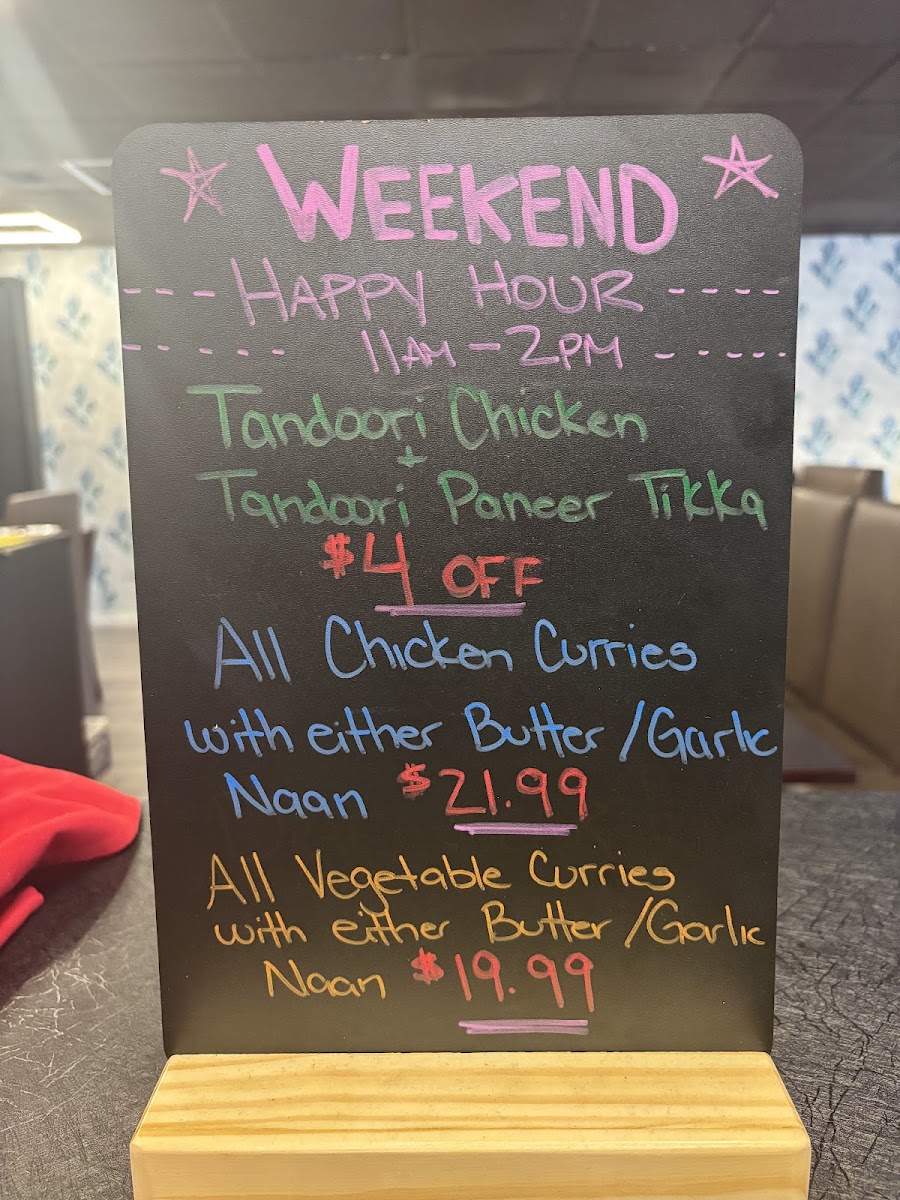 WEEKEND
HAPPY HOUR
11AM - 2PM
Tandoori Chicken
+
Tandoori Paneer Tikka
$4 OFF
All Chicken Curries
with either Butter / Garlic
Naan $21.99
All Vegetable Curries
with either Butter / Garlic
Naan $19.99